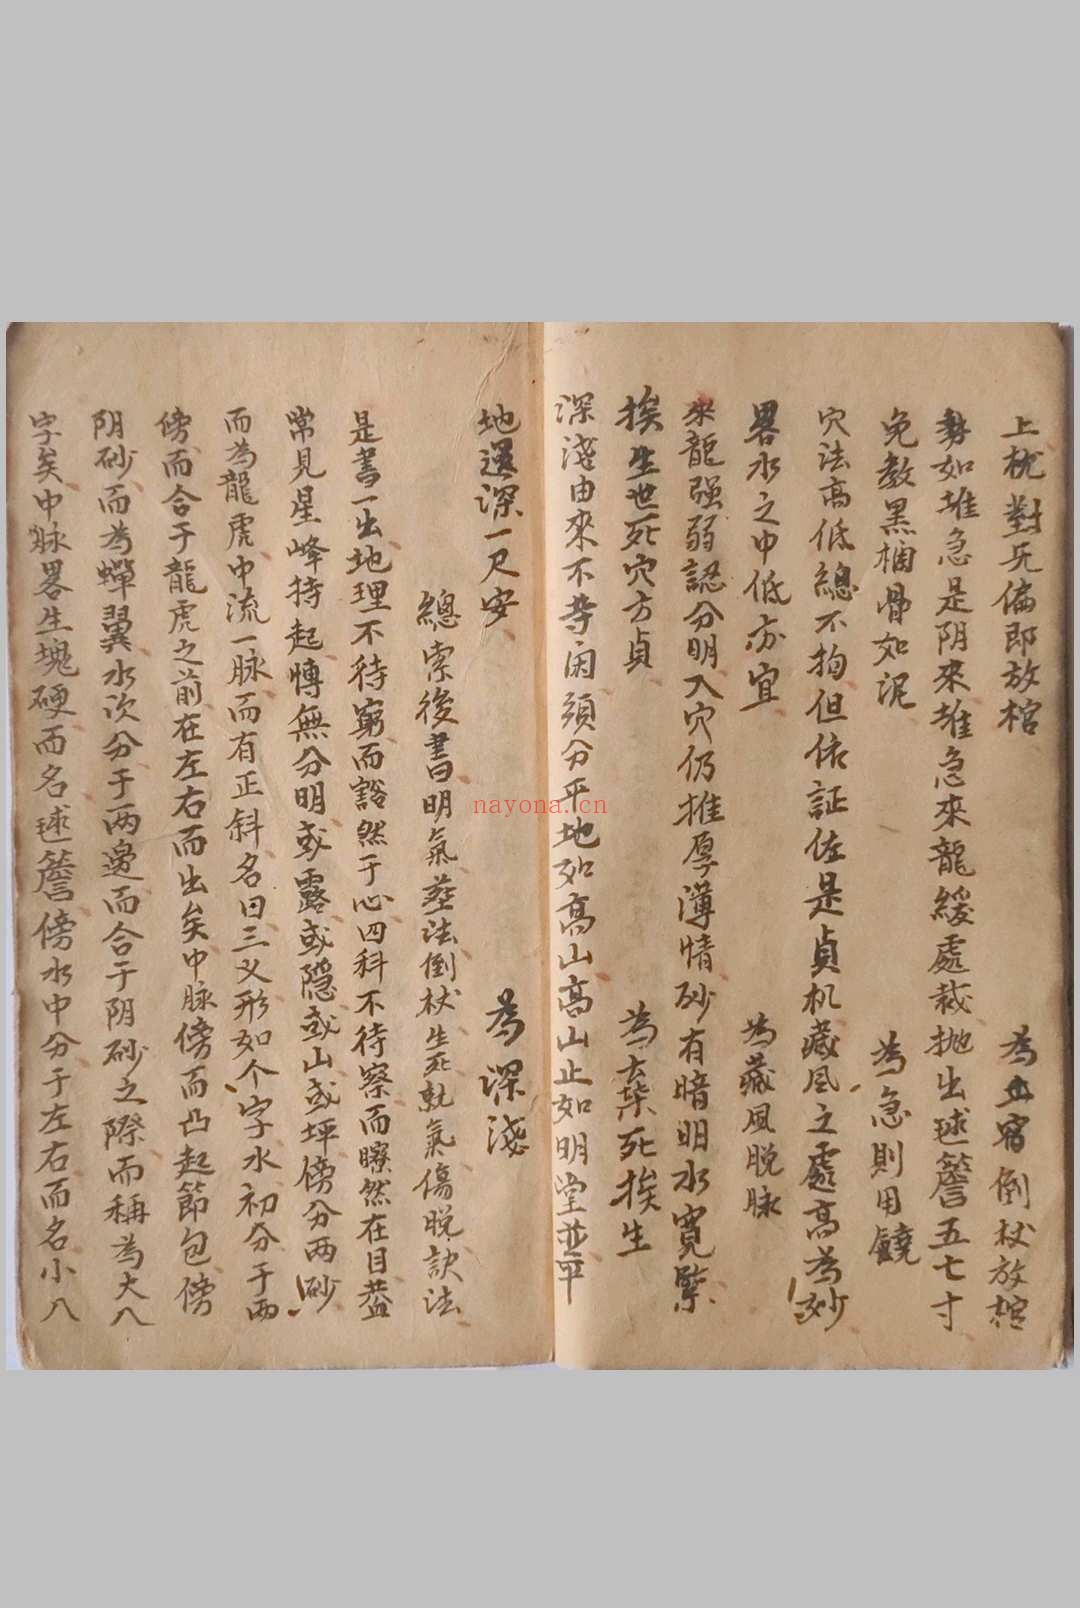 上枕對兄偏即放棺 為立宿倒杖放棺
勢如雄急是阴來雄急來龍緩處裁抛出毬簷五七寸
免教黑棺骨如泥 為急則用饒
穴法高低總不拘但依証佐是貞机藏风之處高為妙
畧水之中低亦宜 為藏風脫脉
來龍强弱認分明入穴仍推厚薄情砂有暗明水寛緊
挨生世死穴方貞 為去棄死挨生
深淺由來不等閑須分平地如高山高山止如明堂並平
地還深一尺安 為深淺
總索後書明氣塟法倒杖生死就氣傷脫訣法
是書一出地理不待窮而豁然于心四科不待察而瞭然在目盖
常見星峰持起愽無分明或露或隐或山或坪傍分两砂
而為龍虎中流一脉而有正斜名曰三义形如个字水初分于两
傍而合于龍虎之前在左右而出矣中脉傍而凸起節包傍
阴砂而為蟬翼水次分于两邊而合于阴砂之際而稱為大八
字矣中脉畧生塊硬而名毬簷傍水中分于左右而名小八
nayona.cn